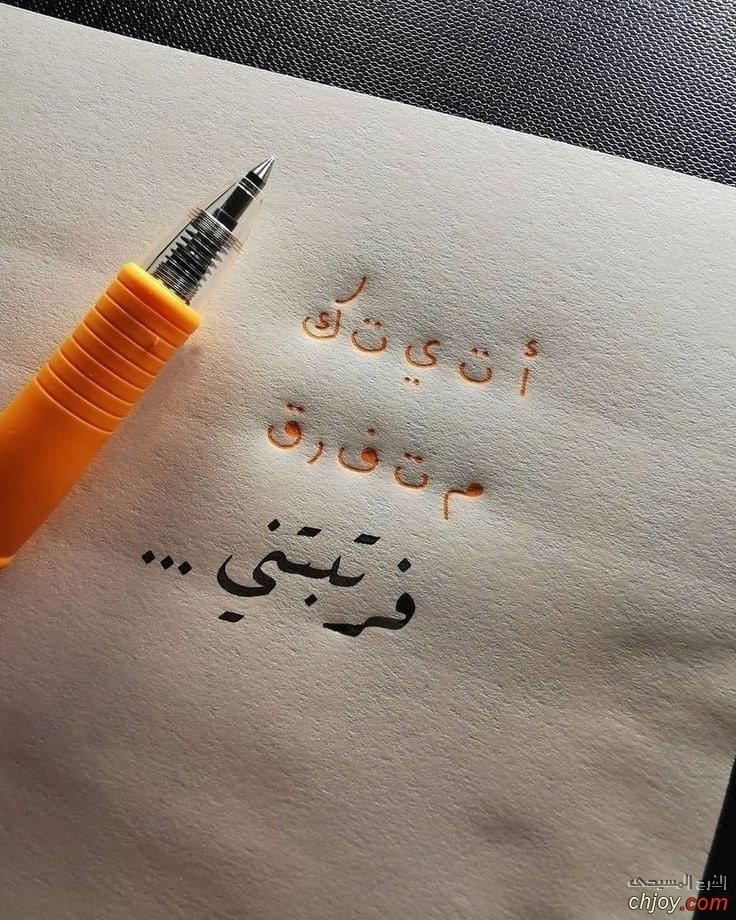 أ ت ي ت ك
م ت ف ر ق
فرتبتني ...
الفرح المسيحى
chjoy.com